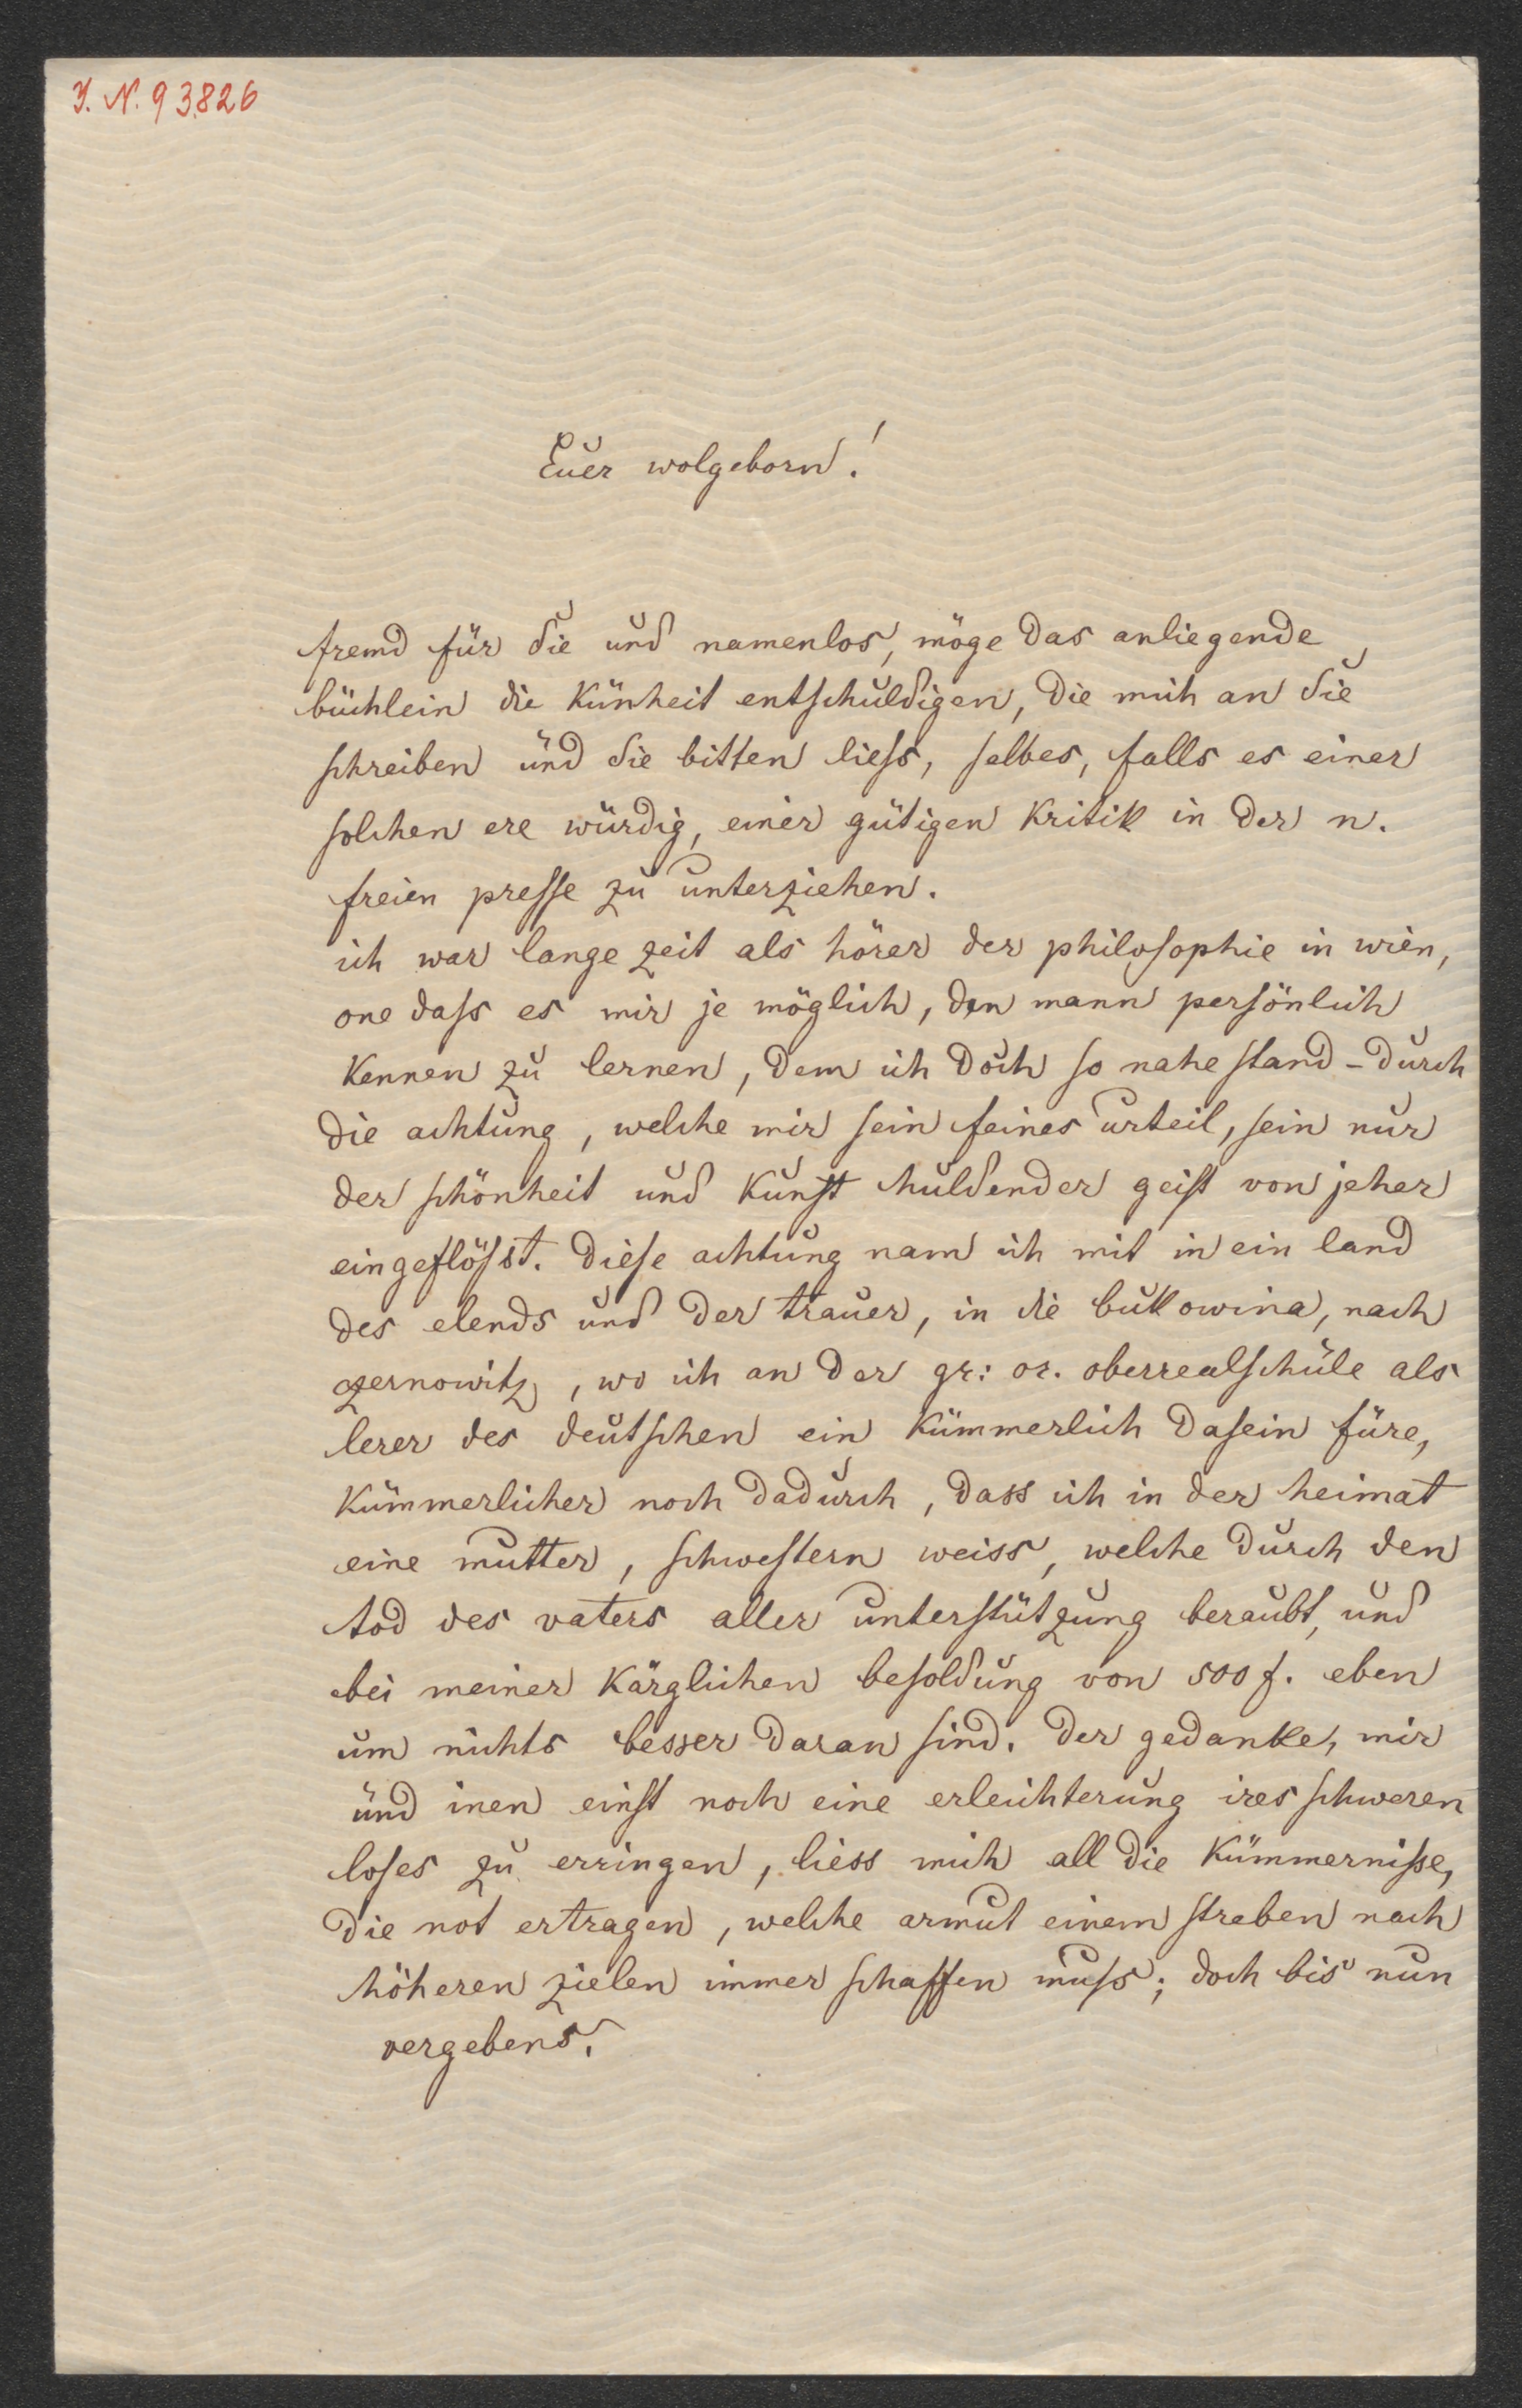 I. N. 93.826
Euer wolgeborn!
fremd für Sie und namenlos, möge das anliegende
büchlein die künheit entschuldigen, die mich an Sie
schreiben und Sie bitten liess, selbes, falls es einer
solchen ere würdig, einer gütigen kritik in der n.
freien presse zu unterziehen.
ich war lange zeit als hörer der philosophie in wien,
one dass es mir je möglich, den mann persönlich
kennen zu lernen, dem ich doch so nahe stand - durch
die achtung, welche mir sein feines urteil, sein nur
der schönheit und kunst huldender geist von jeher
eingeflösst. diese achtung nam ich mit in ein land
des elends und der trauer, in die bukowina, nach
czernowitz, wo ich an der gr: or. oberrealschule als
lerer des deutschen ein kümmerlich dasein füre,
kümmerlicher noch dadurch, dass ich in der heimat
eine mutter, schwestern weiss, welche durch den
tod des vaters aller unterstützung beraubt, und
bei meiner kärglichen besoldung von 500 f. eben
um nichts besser daran sind. der gedanke, mir
und inen einst noch eine erleichterung ires schweren
loses zu erringen, liess mich all die kümmernisse,
die not ertragen, welche armut einem streben nach
höheren zielen immer schaffen muss; doch bis nun
vergebens.